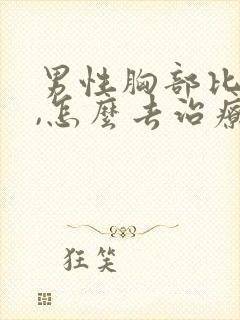 男性胸部比
,怎麼去治療
狂笑